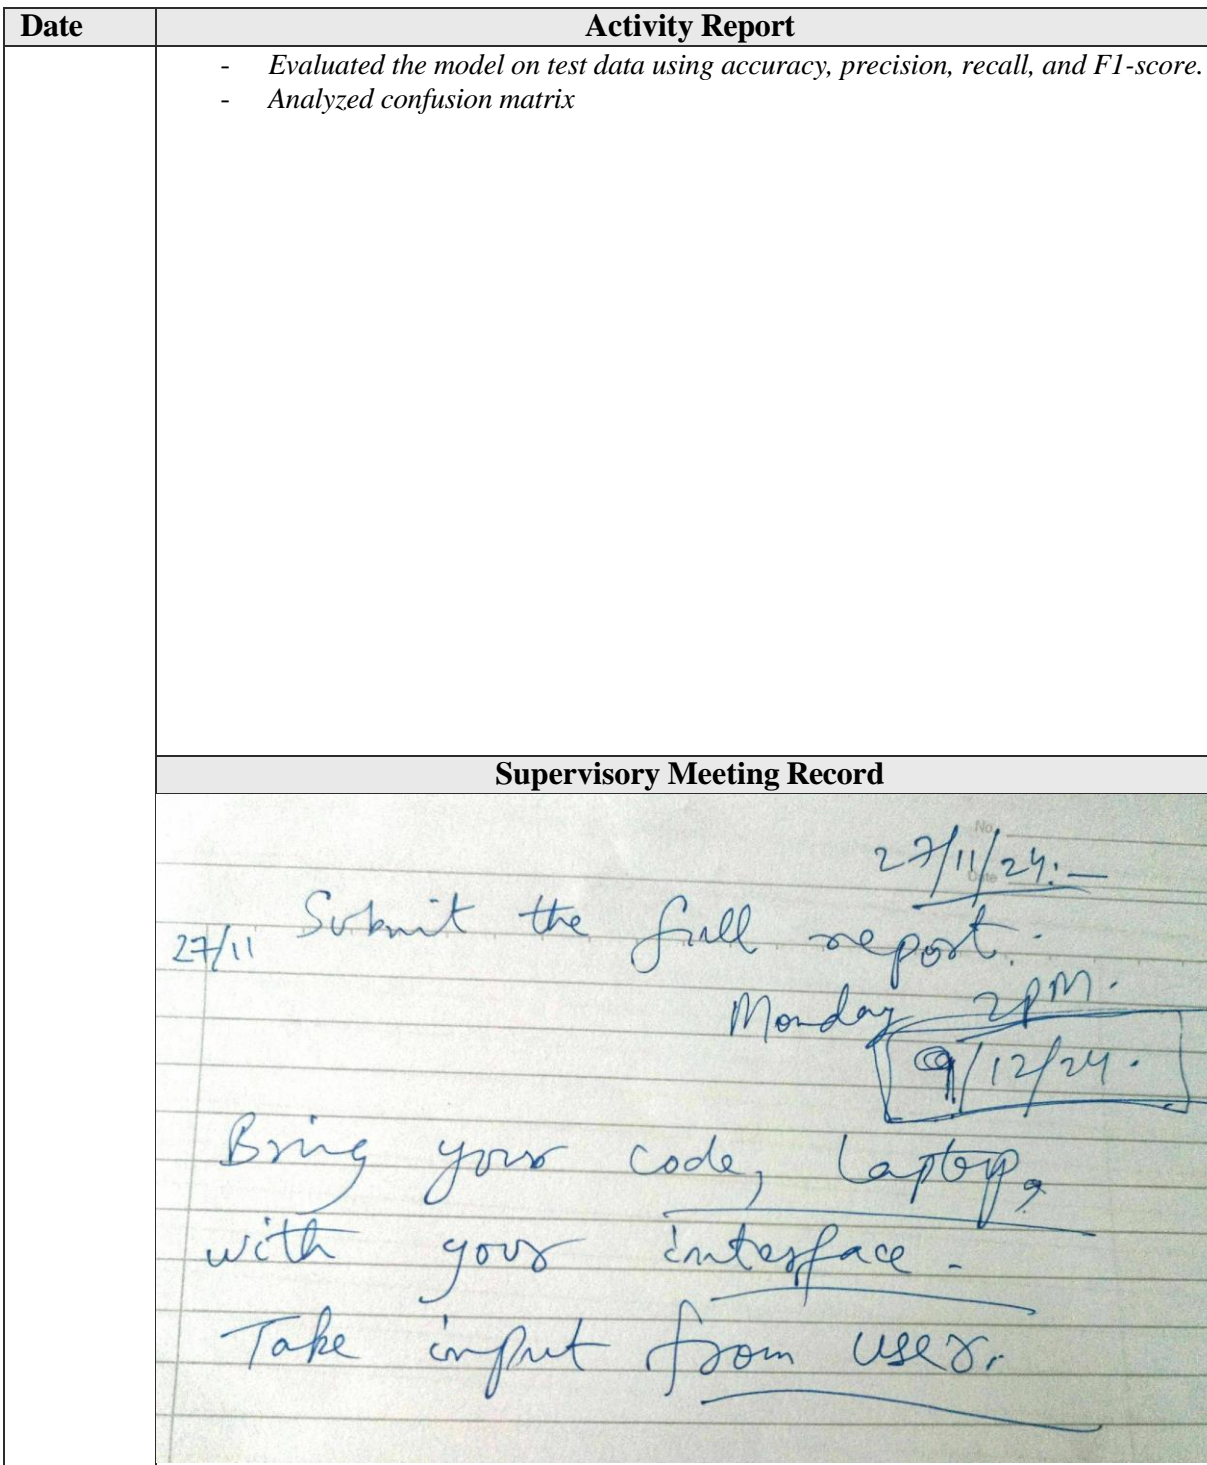 Date
Activity Report
- Evaluated the model on test data using accuracy, precision, recall, and F1-score.
- Analyzed confusion matrix
Supervisory Meeting Record
No.
Date
27/11/24:-
27/11 Submit the full report.
Monday 2PM.
9/12/24.
Bring your code, laptop,
with your interface.
Take input from user.